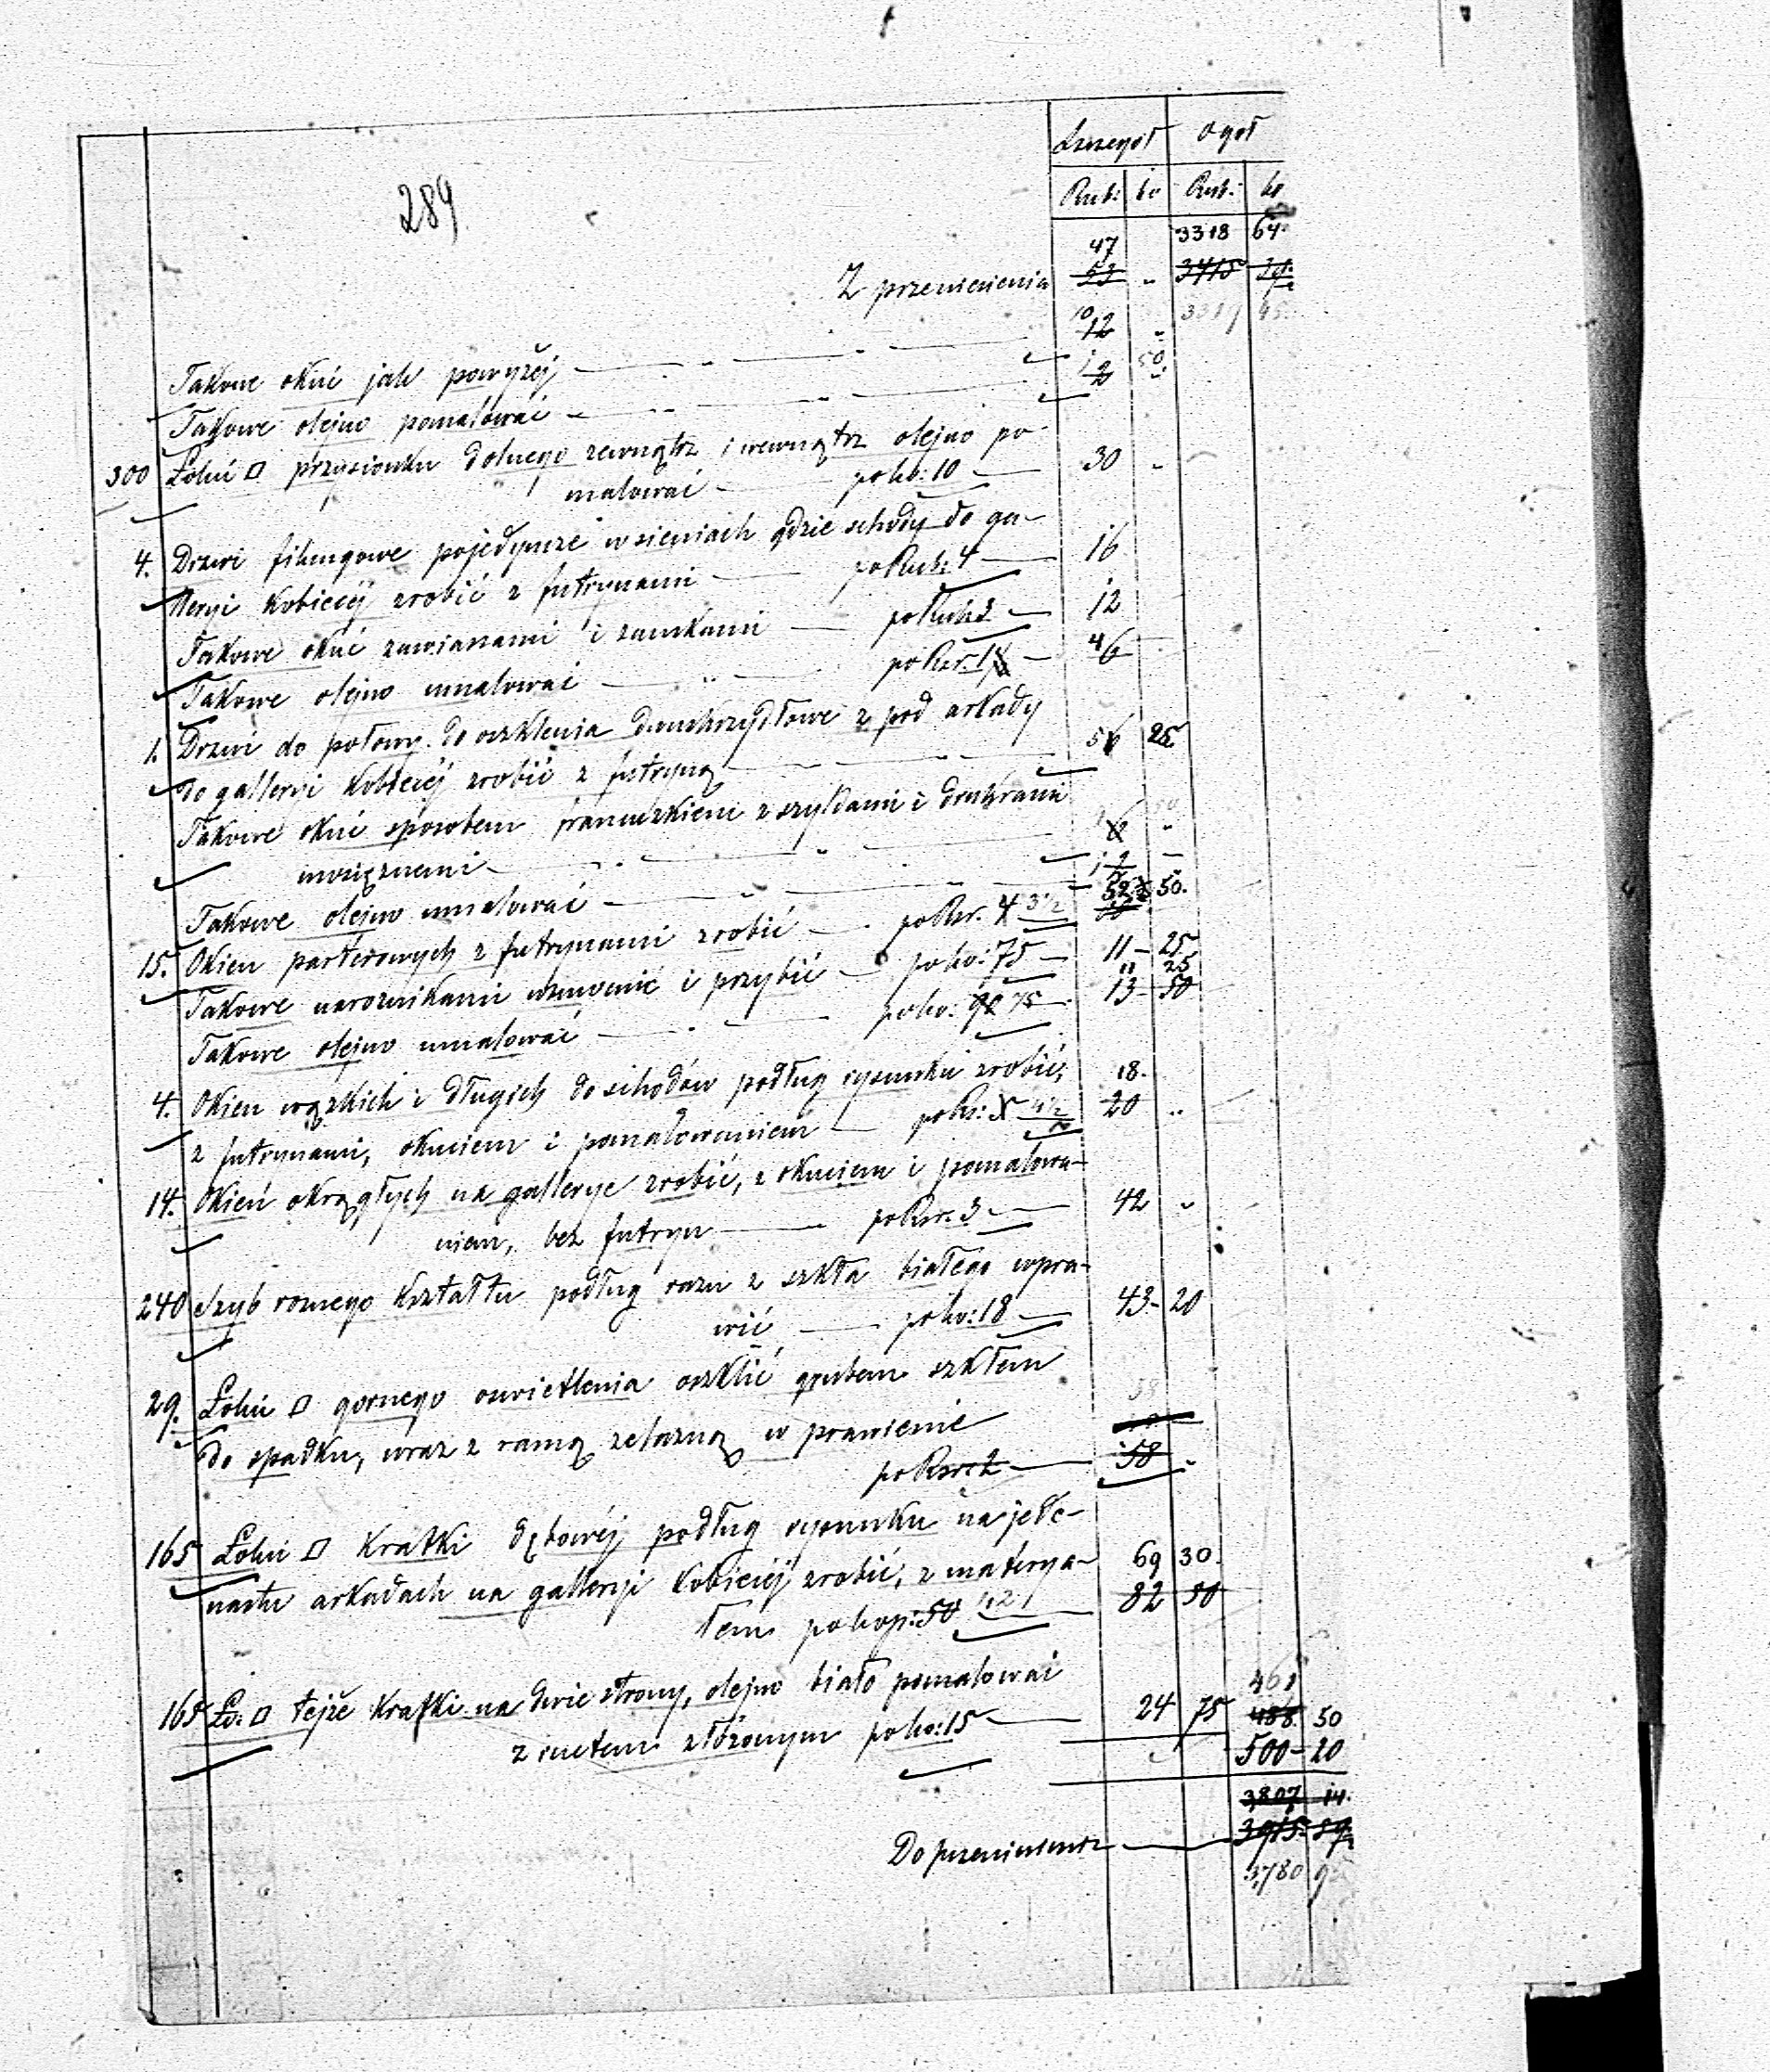 Szczegół Ogół
Rub: ko Rub: ko
289
47 3318 64
Z przeniesienia 53 " 3415 39
10
Takowe okuć jak powyżéj — " — 12 "
50
Takowe olejno pomalować — " — 2 "
300 Łokci □ przysionku dolnego zewnątrz i wewnątrz olejno po-
malować — po ko: 10 — 30 "
4. Drzwi filungowe pojedyncze w sieniach gdzie schody do ga-
lleryi kobiecéj zrobić z futrynami — po Rub: 4 — 16
Takowe okuć zawiasami i zamkami — po Rub: 3 — 12
Takowe olejno umalować — " — po Rsr. 1 — 4
1. Drzwi do połowy do oszklenia dwuskrzydłowe z pod arkady
do galleryi kobiecéj zrobić z futryną — 5 25
Takowe okuć sposobem francuzkiem z szyldami i drukrami
mosiężnemi — " —
Takowe olejno umalować — " —
52 50.
15. Okien parterowych z futrynami zrobić — po Rsr. 4 3½
Takowe narożnikami wzmocnić i przybić — po ko: 75 — 11 – 25
11 25
Takowe olejno umalować — po ko: 90 75 — 13 – 50
4. Okien wązkich i długich do schodów podług rysunku zrobić, 18.
z futrynami, okuciem i pomalowaniem — po Rs: 5 4½ 20 "
14. Okien okrągłych na gallerye zrobić, z okuciem i pomalowa-
niem, bez futryn — po Rsr. 3 — 42 "
240 Szyb roznego kształtu podług razu z szkła białego wpra-
wić — po ko: 18 — 43 – 20
29. Łokci □ gornego oswietlenia oszklić grubem szkłem
do spadku, wraz z ramą zelazną w prawienie
po Rsr: 2 — 58 "
165 Łokci □ Kratki dębowéj podług rysunku na jede-
nastu arkadach na galleryi kobiecéj zrobić, z materya- 69 30.
łem po kop: 50 42 82 50
165 Ło. □ tejże kratki na dwie strony, olejno biało pomalować 461
z rustem złożonym po ko: 15 — 24 75 488 50
500 – 20
3,807 14.
Do przeniesienia — 3915 59
3,780 95